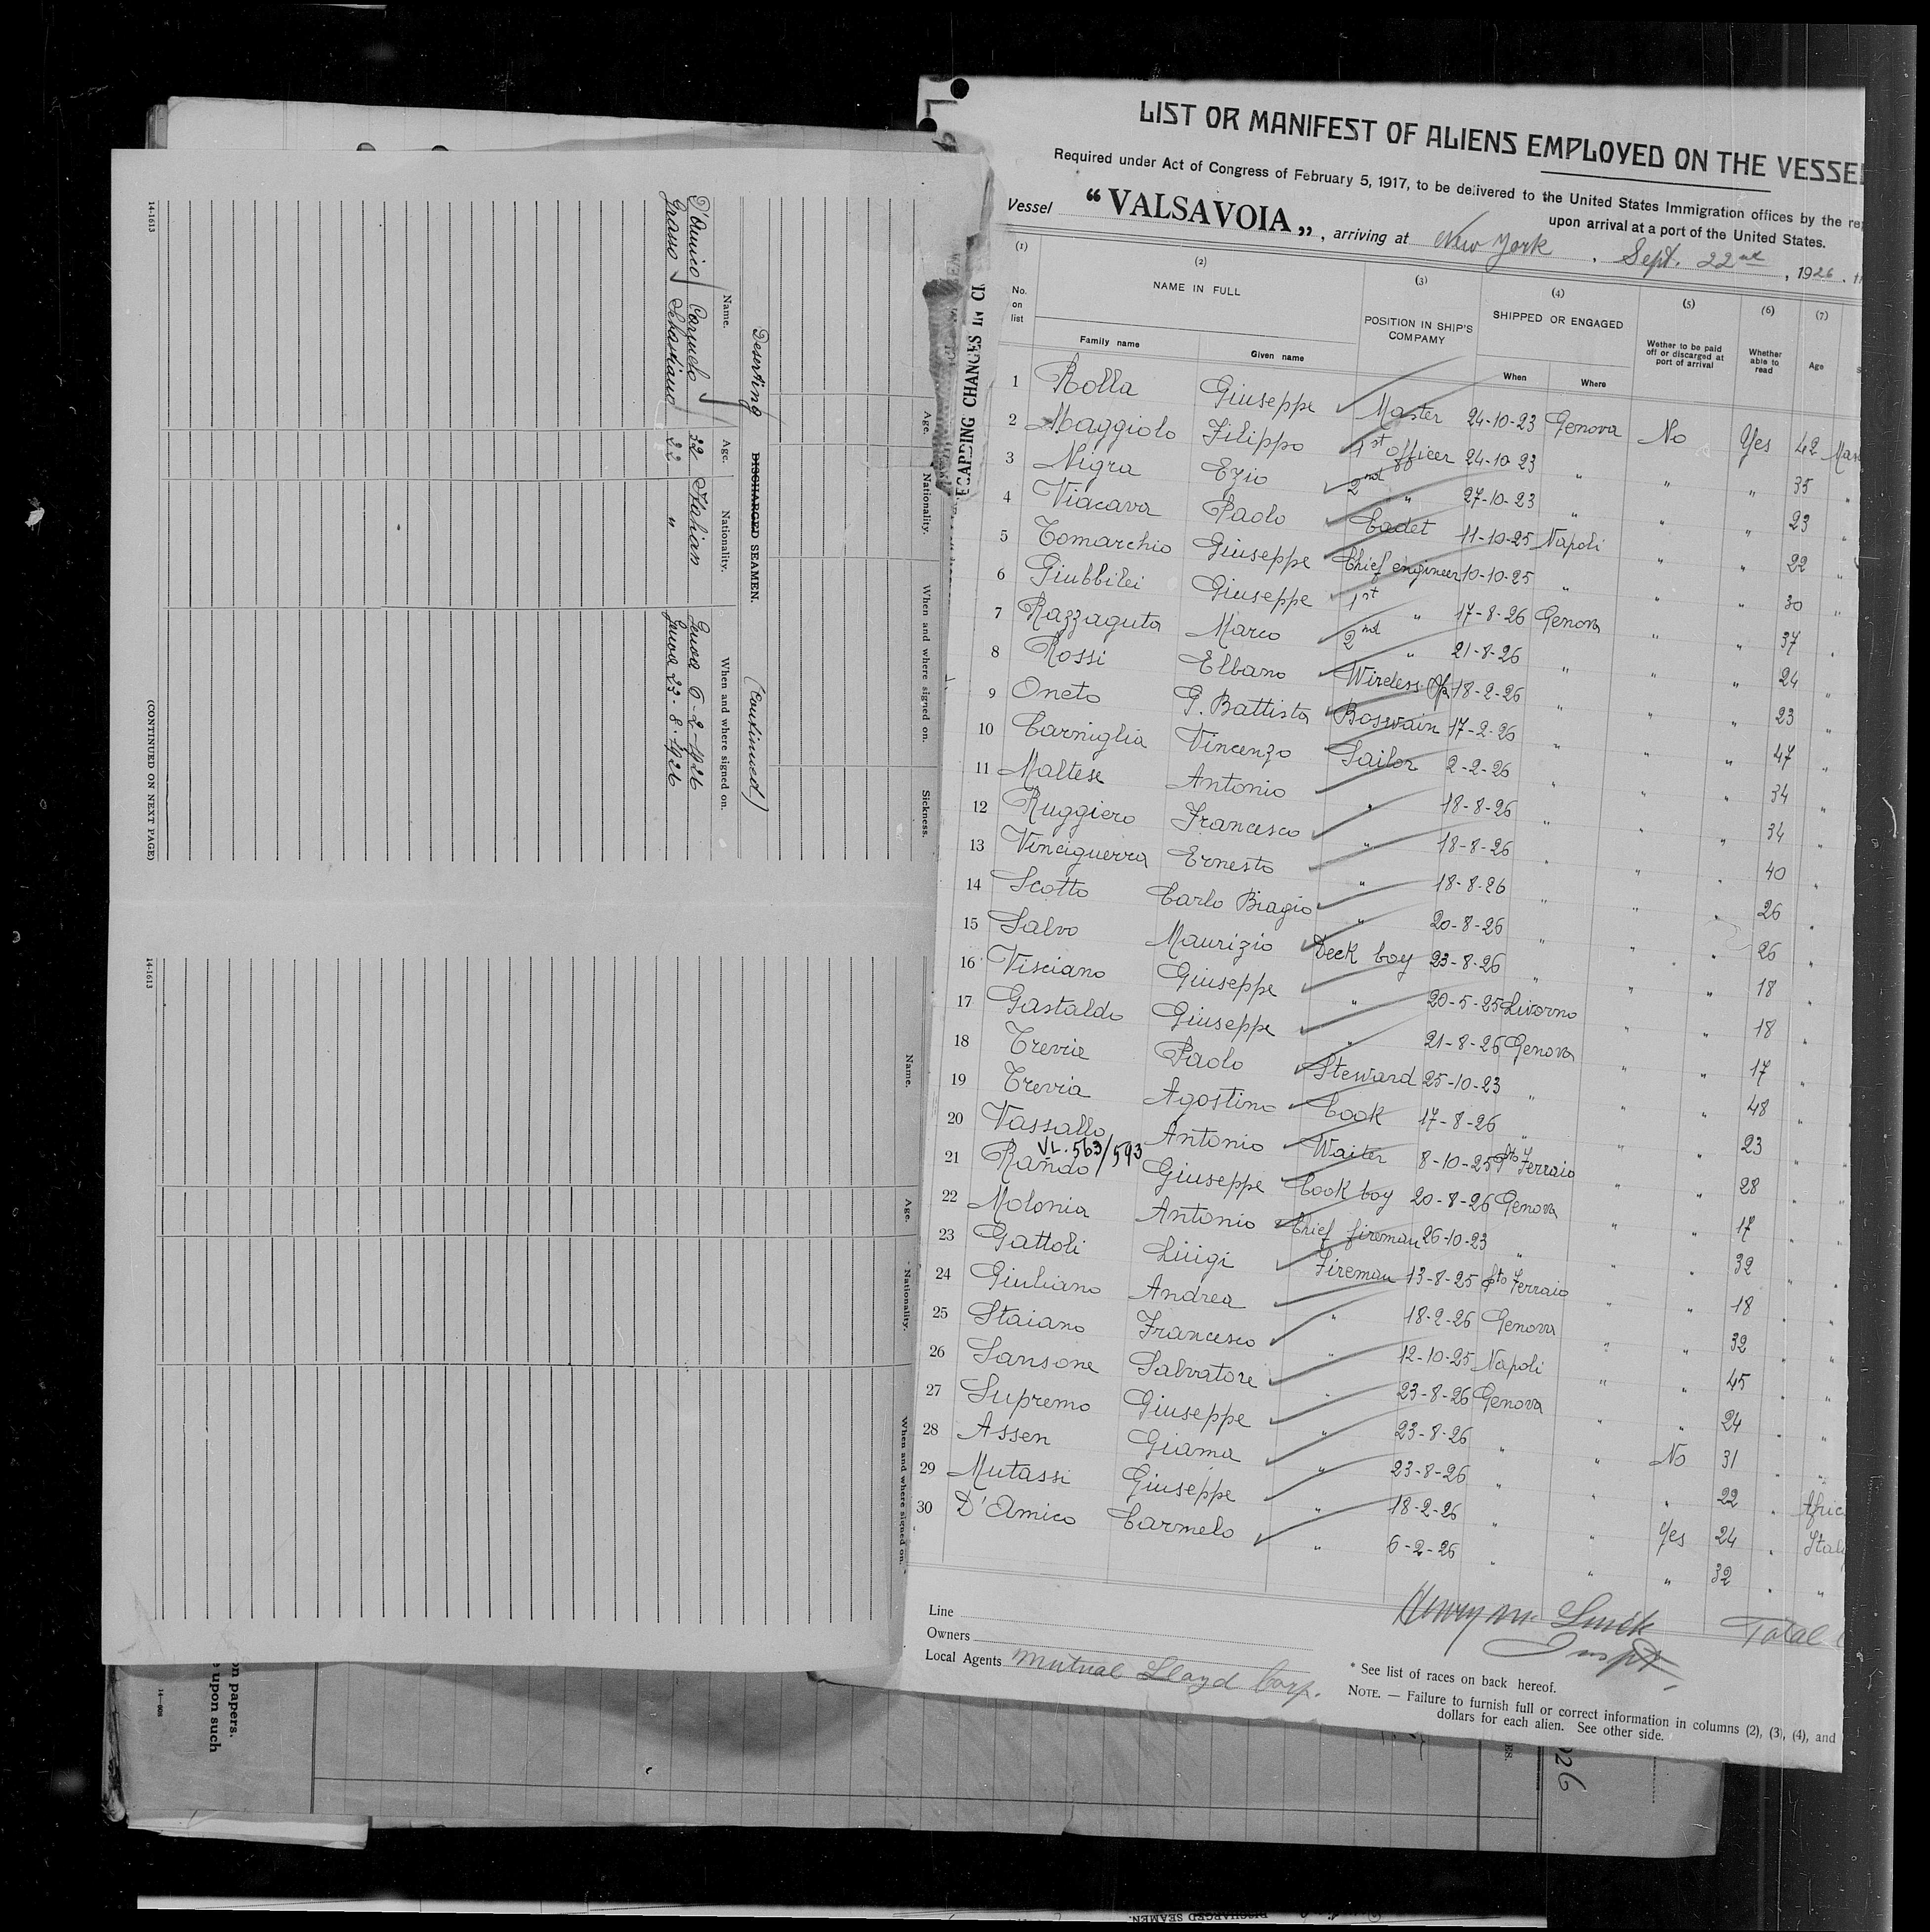 LIST OR MANIFEST OF ALIENS EMPLOYED ON THE VESSEL
Required under Act of Congress of February 5, 1917, to be delivered to the United States Immigration offices by the
upon arrival at a port of the United States.
Vessel "VALSAVOIA", arriving at New York, Sept. 22nd, 1926.
(1) (2) (3) (4) (5) (6) (7)
No. on list NAME IN FULL POSITION IN SHIP'S COMPANY SHIPPED OR ENGAGED Wether to be paid off or discarged at port of arrival Whether able to read Age
Family name Given name When Where
1 Rolla Giuseppe Master 24-10-23 Genova No Yes 42
2 Maggiolo Filippo 1st officer 24-10-23 " " " 35
3 Nigra Ezio 2nd " 27-10-23 " " " 23
4 Viacava Paolo Cadet 11-10-25 Napoli " " 22
5 Tomarchio Giuseppe Chief engineer 10-10-25 " " " 30
6 Giubbilei Giuseppe 1st " 17-8-26 Genova " " 37
7 Razzaguta Marco 2nd " 21-8-26 " " " 24
8 Rossi Elbano Wireless Op. 18-2-26 " " " 23
9 Oneto G. Battista Boswain 17-2-26 " " " 47
10 Carniglia Vincenzo Sailor 2-2-26 " " " 34
11 Maltese Antonio " 18-8-26 " " " 34
12 Ruggiero Francesco " 18-8-26 " " " 40
13 Vinciguerra Ernesto " 18-8-26 " " " 26
14 Scotto Carlo Biagio " 20-8-26 " " " 26
15 Salvo Maurizio Deck boy 23-8-26 " " " 18
16 Visciano Giuseppe " 20-5-25 Livorno " " 18
17 Gastaldo Giuseppe " 21-8-26 Genova " " 17
18 Trevia Paolo Steward 25-10-23 " " " 48
19 Trevia Agostino Cook 17-8-26 " " " 23
20 Vassallo Antonio Waiter 8-10-25 Pto Ferraio " " 28
VL. 563/593
21 Rando Giuseppe Cook boy 20-8-26 Genova " " 17
22 Molonia Antonio Chief fireman 26-10-23 " " " 32
23 Gattoli Luigi Fireman 13-8-25 Pto Ferraio " " 18
24 Giuliano Andrea " 18-2-26 Genova " " 32
25 Staiano Francesco " 12-10-25 Napoli " " 45
26 Sansone Salvatore " 23-8-26 Genova " " 24
27 Supremo Giuseppe " 23-8-26 " " No 31
28 Assen Giama " 23-8-26 " " " 22
29 Mutassi Giuseppe " 18-2-26 " " Yes 24
30 D'Amico Carmelo " 6-2-26 " " " 32
Line
Owners
Local Agents Mutual Lloyd Corp.
Total
Inspt.
* See list of races on back hereof.
NOTE. — Failure to furnish full or correct information in columns (2), (3), (4), and
dollars for each alien. See other side.
Age. Nationality. When and where signed on. Sickness.
Deserting DISCHARGED SEAMEN. (Continued)
Name. Age. Nationality. When and where signed on.
D'Amico Carmelo 32 Italian Genoa 6-2-926
Grasso Sebastiano 22 " Genoa 23-8-926
14-1613 (CONTINUED ON NEXT PAGE)
Name. Age. Nationality. When and where signed on.
14-1613
on papers.
upon such
14-608
DISCHARGED SEAMEN.